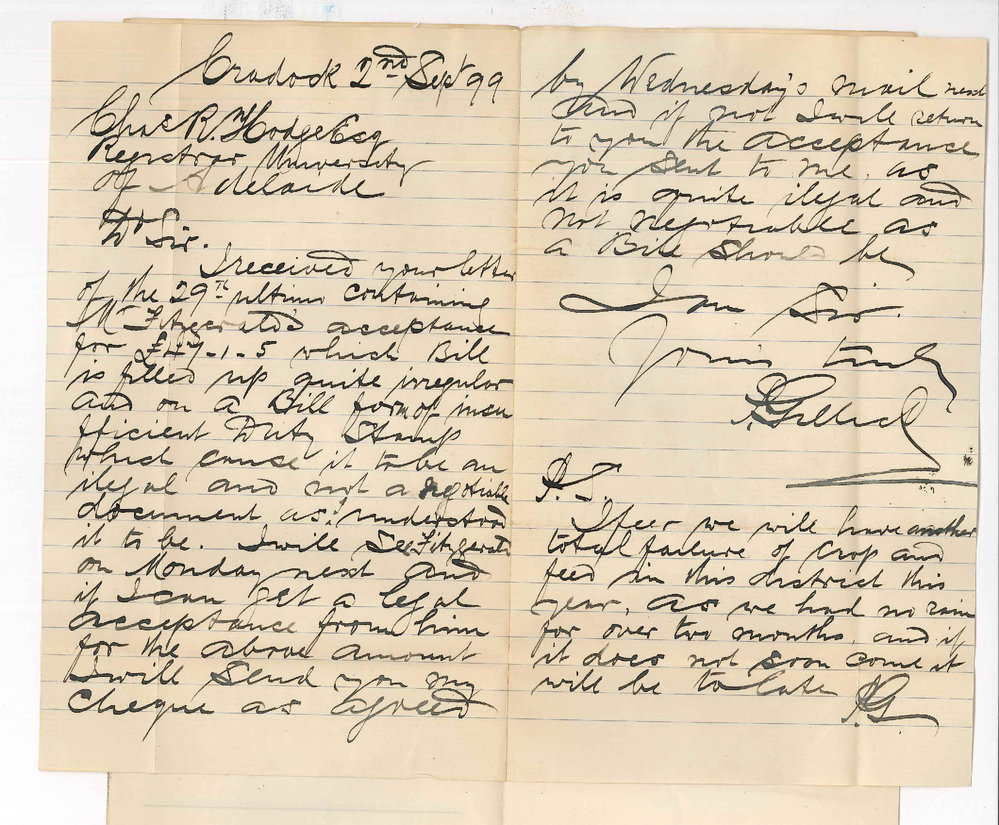 Cradock 2nd Sept 99
Chas R. Hodge Esq
Registrar University
of Adelaide
Dr Sir.
I received your letter
of the 29th ultimo containing
Mr Fitzgerald's acceptance
for £147-1-5 which Bill
is filled up quite irregular
and on a Bill form of insu
fficient Duty Stamp
which cause it to be an
ilegal and not a negotiable
document as I understood
it to be. I will See Fitzgerald
on Monday next and
if I can get a legal
acceptance from him
for the above amount
I will Send you my
Cheque as agreed
by Wednesday's mail next
and if not I will return
to you the acceptance
you sent to me, as
it is quite ilegal and
not negotiable as
a Bill should be
I am Sir.
Yours truly
P. S.
I feer we will have another
total failure of Crop and
feed in this district this
year, as we had no rain
for over two months, and if
it does not soon come it
will be to late JG.